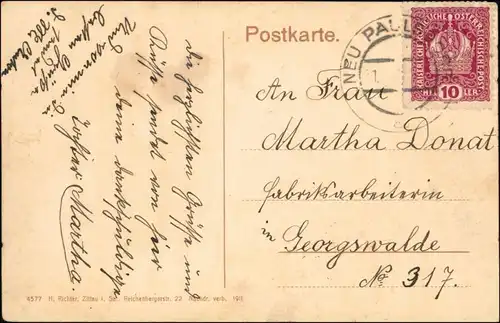 Postkarte.
NEU PALL
KAISERLICHE KÖNIGLICHE ÖSTERREICHISCHE POST
HELLER 10 HELLER
An Frau
Martha Donat
Fabriksarbeiterin
in Georgswalde
No 317.
Die herzlichsten Grüße und
Küsse sendet von hier
deine dankschuldige
Tochter Martha.
4577 H. Richter, Zittau i. Sa. Reichenbergerstr. 23 Nachdr. verb. 1911